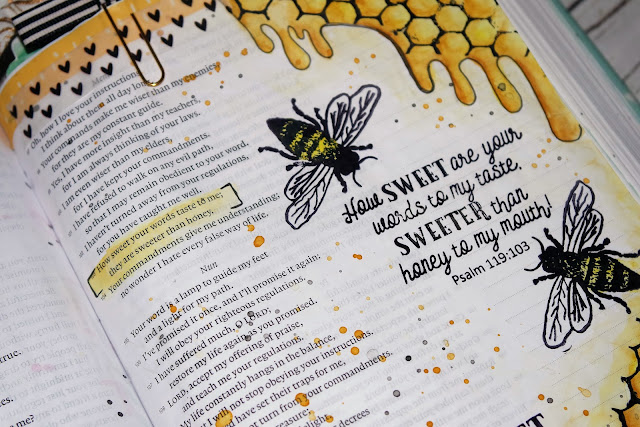 Mem
Oh, how I love your instructions!
I think about them all day long.
Your commands make me wiser than my enemies,
for they are my constant guide.
Yes, I have more insight than my teachers,
for I am always thinking of your laws.
I am even wiser than my elders,
for I have kept your commandments.
I have refused to walk on any evil path,
so that I may remain obedient to your word.
I haven't turned away from your regulations,
for you have taught me well.
How sweet your words taste to me;
they are sweeter than honey.
Your commandments give me understanding;
no wonder I hate every false way of life.
Nun
Your word is a lamp to guide my feet
and a light for my path.
I've promised it once, and I'll promise it again:
I will obey your righteous regulations.
I have suffered much, O LORD;
restore my life again as you promised.
LORD, accept my offering of praise,
and teach me your regulations.
My life constantly hangs in the balance,
but I will not stop obeying your instructions.
have set their traps for me,
not turn from your commandments.
treasure;
delight.
decrees
How SWEET are your
words to my taste,
SWEETER than
honey to my mouth!
Psalm 119:103
true.
me?